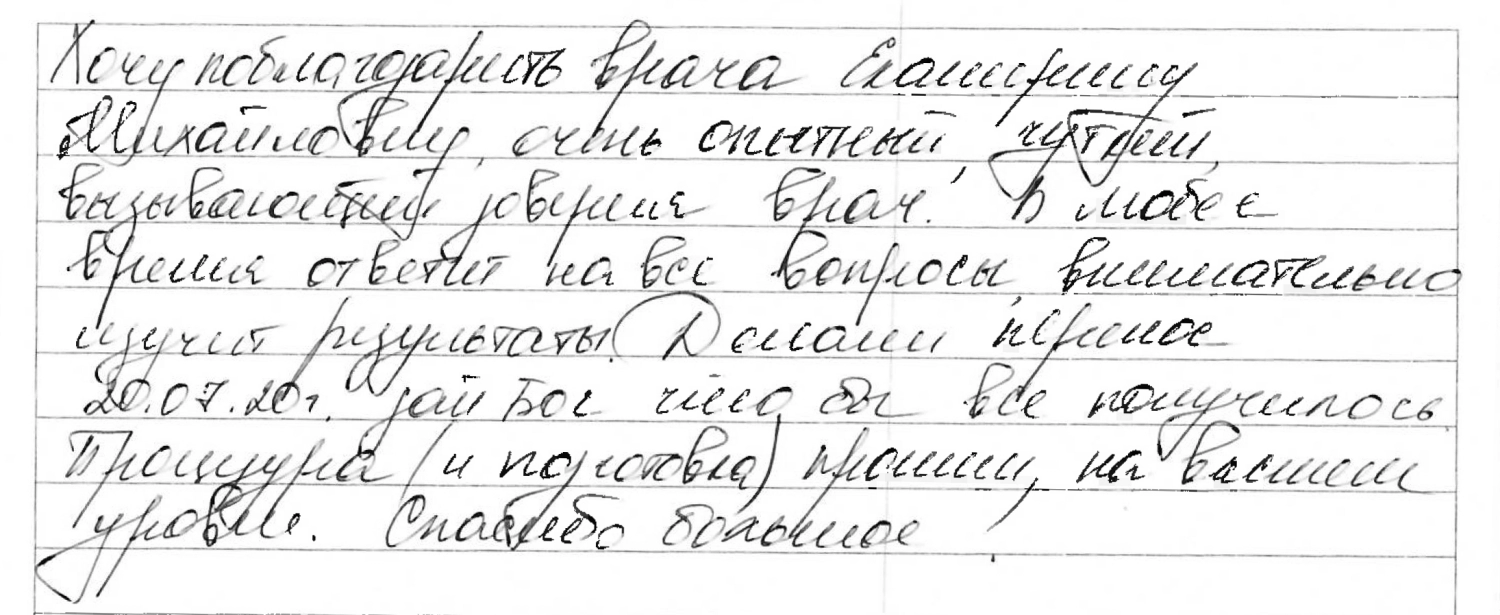 Хочу поблагодарить врача Екатерину
Михайловну, очень опытный, чуткий,
вызывающий доверия врач. В любое
время ответит на все вопросы, внимательно
изучит результаты. Делали перенос
20.07.20г. дай Бог чтобы все получилось.
Процедура (и подготовка) прошли, на высшем
уровне. Спасибо большое.